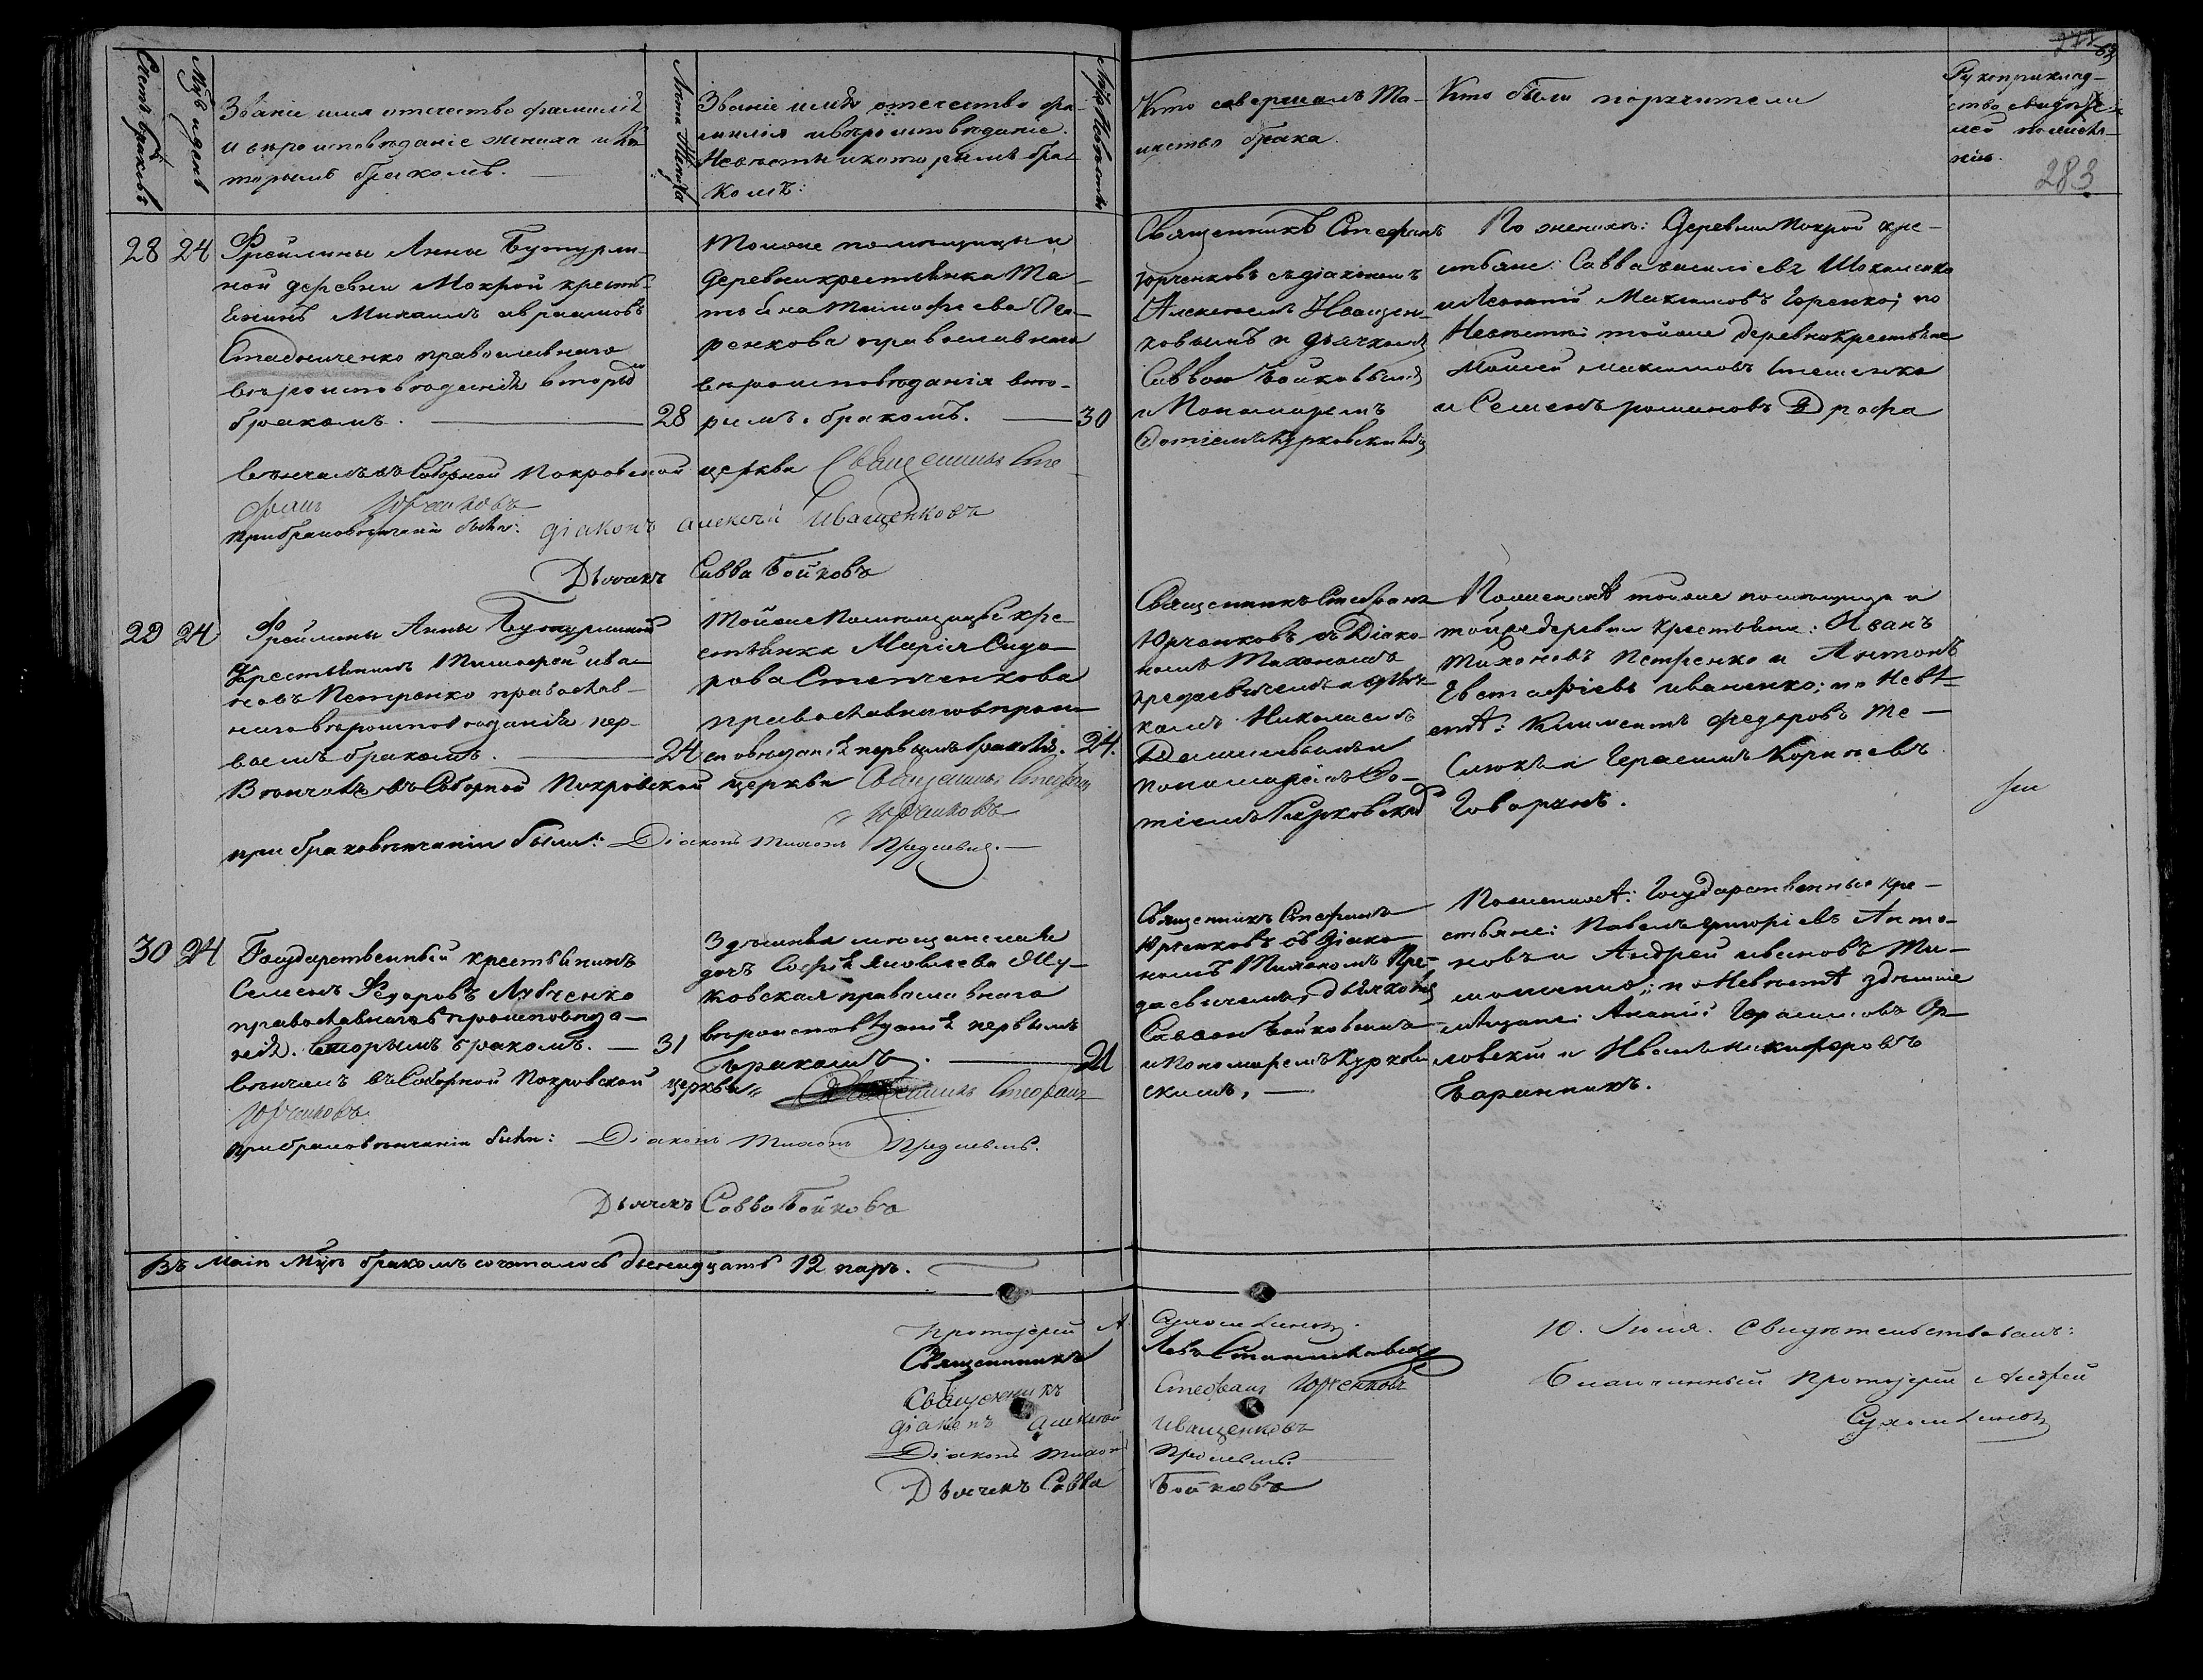 Счетъ браковъ
Мцъ и день
Званіе имя отечество фамилія
и вѣроисповѣданіе жениха и ко-
торымъ бракомъ.
Лѣта жениха
Званіе имя отечество фа-
милія и вѣроисповѣданіе.
Невѣсты и которымъ бра-
комъ:
Лѣта Невѣсты
Кто совершалъ Та-
инство брака.
Кто были поручители
Рукоприклад-
ство свидѣте-
лей по желѣ-
нію.
283
28 24 Фрейлины Анны Бутурли-
ной деревни Мокрой кресть-
янинъ Михаилъ Авраамовъ
православнаго
вѣроисповѣданія вторымъ
бракомъ. 28
Тойже помѣщицы и
деревни крестьянка Та-
тьяна Тимофѣева
православнаго
вѣроисповѣданія вто-
рымъ бракомъ. 30
Священникъ Стефанъ
Юрченковъ съ діакономъ
Алексѣемъ Иващен-
ковымъ и дьячкомъ
Саввою Бойковымъ
и Пономаремъ
Фотіемъ Курковскимъ
По женихѣ: Деревни Мокрой кре-
стьяне: Савва
Максимовъ Горенко; по
Невѣстѣ тойже деревни крестьяне
Моисей Максимовъ
и Семенъ Романовъ Дрофа
Вѣнчалъ въ Соборной Покровской церкви Священникъ Сте-
фанъ Юрченковъ
При браковѣнчаніи были: діаконъ Алексѣй Иващенковъ
Дьячекъ Савва Бойковъ
29 24 Фрейлины Анны Бутурлиной
Крестьянинъ Тимофей Ива-
новъ Петренко православ-
наго вѣроисповѣданія пер-
вымъ бракомъ. 24
Тойже Помѣщицы кре-
стьянка Марія Сидо-
рова Степченкова
православнаго вѣрои-
сповѣданія первымъ бракомъ. 21.
Священникъ Стефанъ
Юрченковъ съ Діако-
номъ Тихономъ
Предаевичемъ и дьяч-
комъ Николаемъ
пономаремъ Фо-
тіемъ Курковскимъ
По женихѣ тойже помѣщицы и
тойже деревни крестьяне: Иванъ
Тихоновъ Петренко и Антонъ
Евстафіевъ Иваненко; по Невѣ-
стѣ: Климентъ Федоровъ Те-
слюкъ и Герасимъ Корніевъ
Говорунъ.
Вѣнчалъ въ Соборной Покровской церкви Священникъ Стефанъ
Юрченковъ
при браковѣнчаніи были: Діаконъ Тихонъ
30 24 Государственный крестьянинъ
Семенъ Федоровъ Лубченко
православнаго вѣроисповѣда-
нія. вторымъ бракомъ. 31
Здѣшняя мѣщанская
дочь Софія Яковлева
православнаго
вѣроисповѣданія первымъ
бракомъ. 21
Священникъ Стефанъ
Юрченковъ съ Діако-
номъ Тихономъ Пре-
даевичемъ, дьячкомъ
Саввою Бойковымъ
и Пономаремъ Курков-
скимъ.
По женихѣ: Государственные кре-
стьяне: Павелъ Григорьевъ Анто-
новъ и Андрей Ивановъ Ти-
; по Невѣстѣ здѣшние
мѣщане: Ананій Герасимовъ Ор-
ловский и Иванъ Никифоровъ
Баранникъ.
Вѣнчалъ въ Соборной Покровской церкви Священникъ Стефанъ
Юрченковъ.
при браковѣнчаніи были: Діаконъ Тихонъ
Дьячекъ Савва Бойковъ
Въ Маіи Мцѣ бракомъ сочеталось двенадцать 12 паръ.
Протоіерей А.
Священникъ Левъ
Священникъ Стефанъ Юрченковъ
діаконъ Алексѣй Иващенковъ
Діаконъ Тихонъ
Дьячекъ Савва Бойковъ
10. Іюня. Свидѣтельствовалъ:
Благочинный Протоіерей Андрей